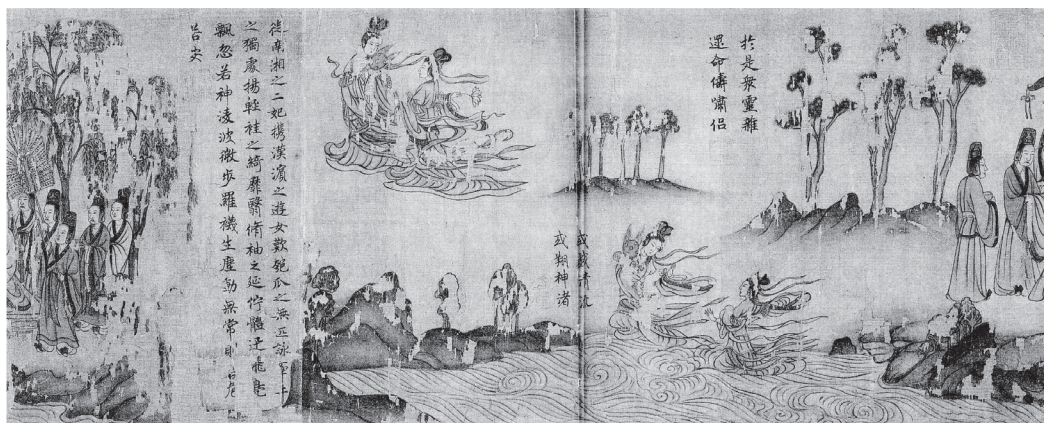 於是衆靈雜
遝命儔嘯侶
或戲清流
或翔神渚
從南湘之二妃攜漢濱之遊女歎匏瓜之無匹詠
之獨處揚輕袿之綺靡翳脩袖之延佇體迅飛
飄忽若神淩波微步羅襪生塵動無常則若危
若安